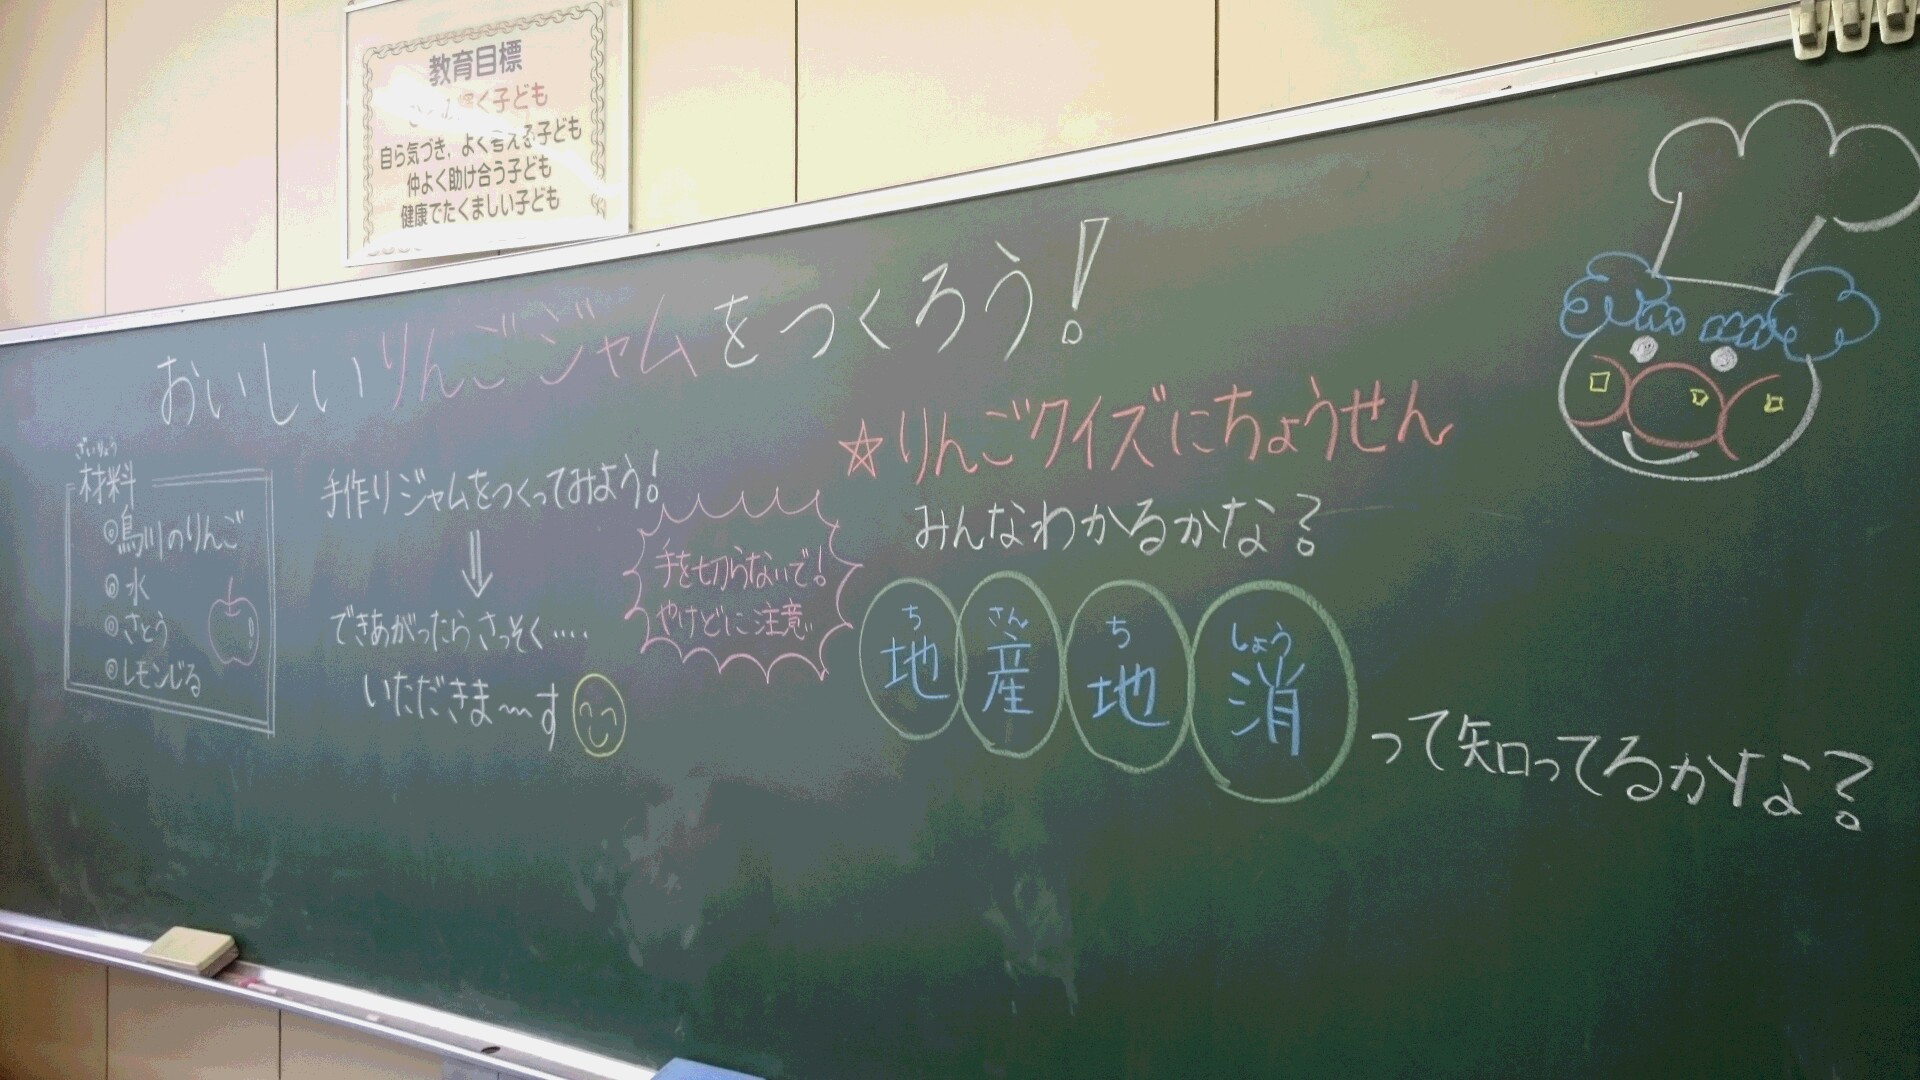 教育目標
く子ども
自ら気づき、よく考える子ども
仲よく助け合う子ども
健康でたくましい子ども
おいしいりんごジャムをつくろう!
ざいりょう
材料
◎鳥川のりんご
◎水
◎さとう
◎レモンじる
手作りジャムをつくってみよう!
⇓
できあがったらさっそく‥‥
いただきま〜〜す
手を切らないで!
やけどに注意
☆りんごクイズにちょうせん
みんなわかるかな?
ち さん ち しょう
地産地消って知ってるかな?